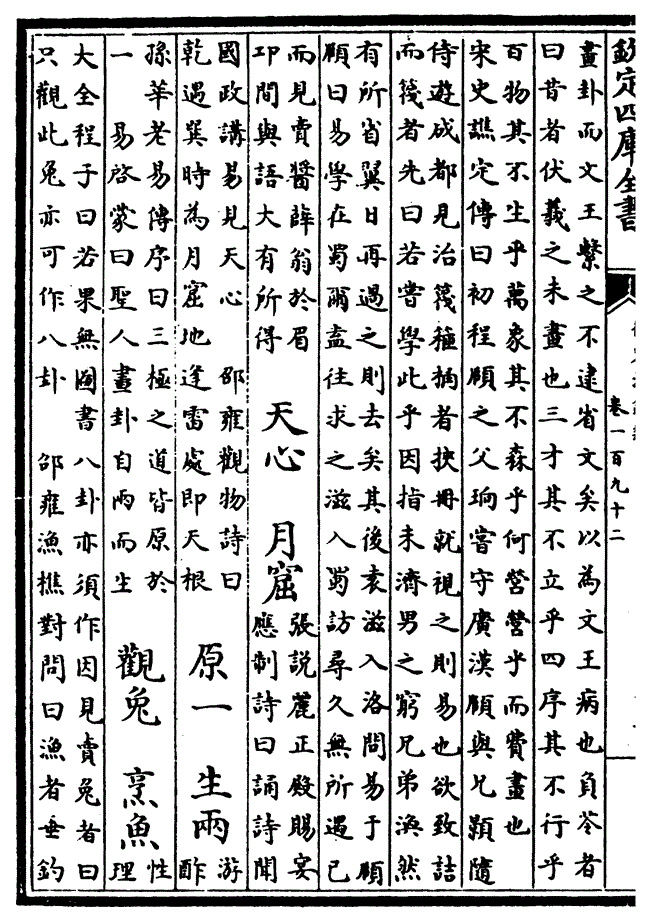 欽定四庫全書
卷一百九十二
畫卦而文王繫之不逮省文矣以為文王病也負苓者
曰昔者伏羲之未畫也三才其不立乎四序其不行乎
百物其不生乎萬象其不森乎何營營乎而費畫也
宋史譙定傳曰初程頤之父珦嘗守廣漢頤與兄顥隨
侍遊成都見治篾箍桶者挾冊就視之則易也欲致詰
而篾者先曰若嘗學此乎因指未濟男之窮兄弟渙然
有所省翼日再過之則去矣其後袁滋入洛問易于頤
頤曰易學在蜀爾盍往求之滋入蜀訪尋久無所遇已
而見賣醬薛翁於眉
邛間與語大有所得
天心　月窟
張說麗正殿賜宴
應制詩曰誦詩聞
國政講易見天心　邵雍觀物詩曰
乾遇巽時為月窟地逢雷處即天根
原一　生兩
游
酢
孫華老易傳序曰三極之道皆原於
一　易啓蒙曰聖人畫卦自兩而生
觀兔　烹魚
性
理
大全程子曰若果無圖書八卦亦須作因見賣兔者曰
只觀此兔亦可作八卦　邵雍漁樵對問曰漁者垂釣